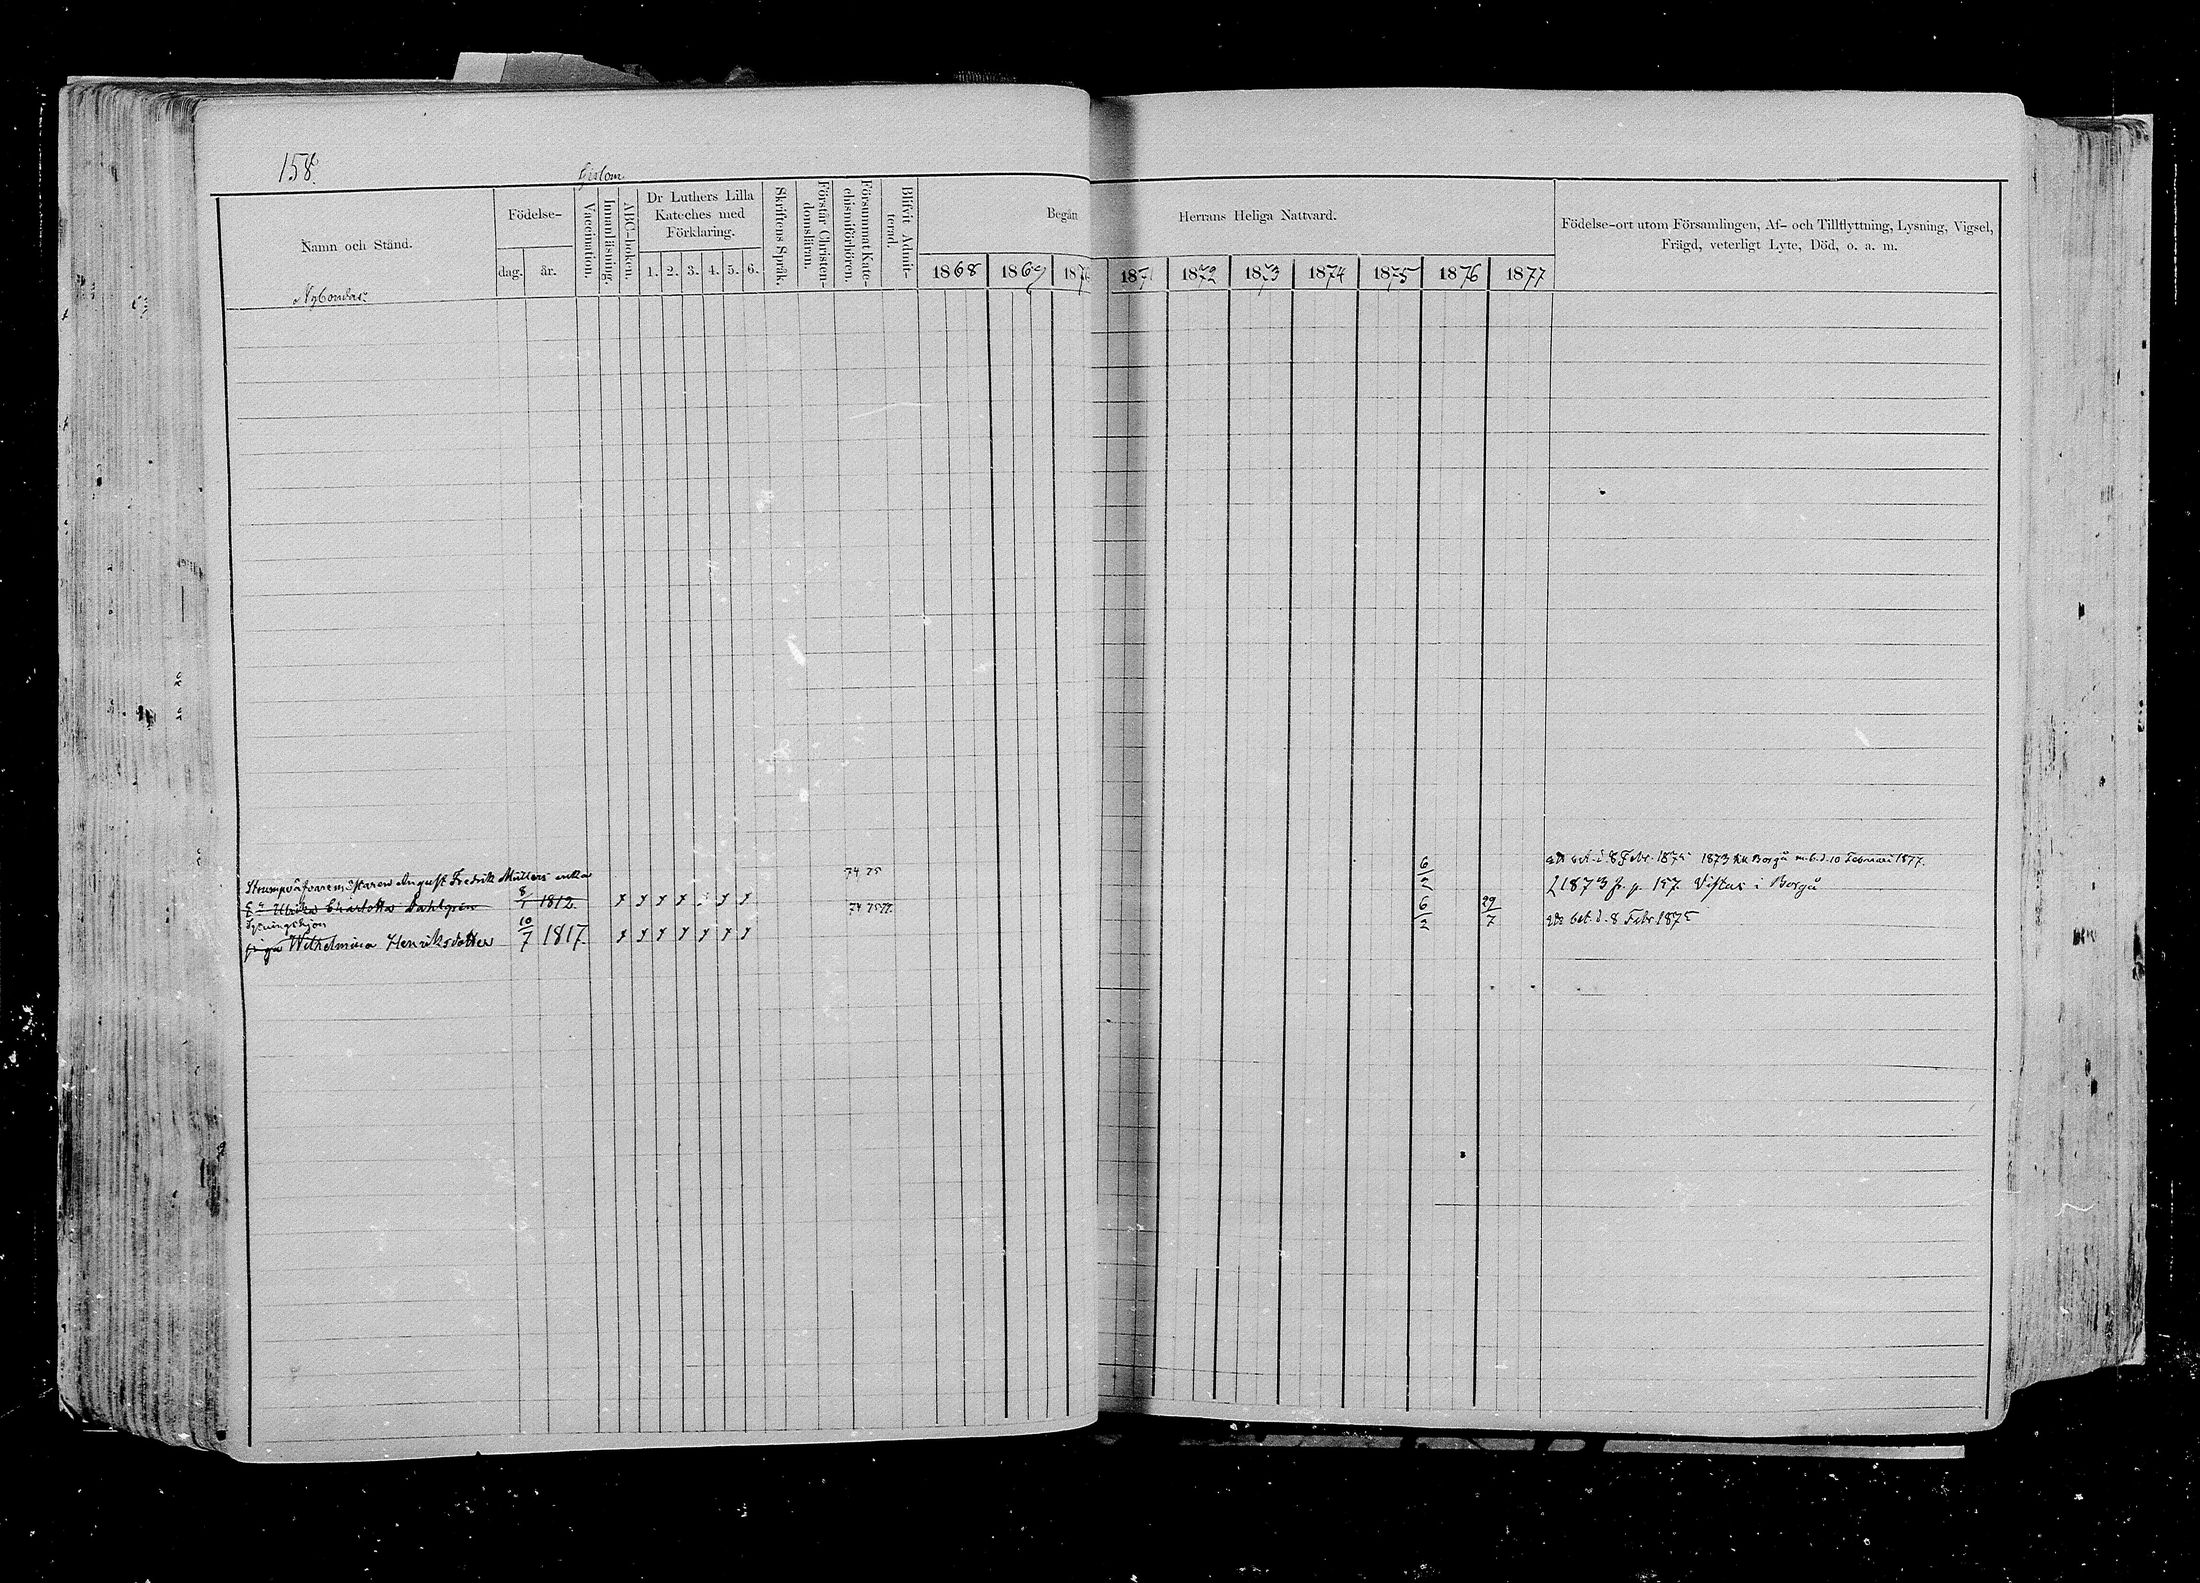 158.
Namn och Stånd.
Födelse-
dag. år.
Vaccination.
Innanläsning.
ABC-boken.
Dr Luthers Lilla
Kateches med
Förklaring.
1. 2. 3. 4. 5. 6.
Skriftens Språk.
Förstår Christen-
domsläran.
Försummat Kate-
chismiförhören.
Blifvit Admit-
terad.
Begån Herrans Heliga Nattvard.
1868 1869 1870 1871 1872 1873 1874 1875 1876 1877
Födelse-ort utom Församlingen, Af- och Tillflyttning, Lysning, Vigsel,
Frägd, veterligt Lyte, Död, o. a. m.
Nybondas
74 75 6/2 bet. d. 8 Febr. 1875 1873 Borgå m. b. d. 10 Februari 1877.
August Fredrik Müllers enka
Ulrika Charlotta Dahlgrén 8/1 1812 1873 fr. p. 157. Vistas i Borgå
74 75 77 6/2 29/7 bet. d. 8 Febr. 1875
Sytningshjon
piga Wilhelmina Henriksdotter 10/7 1817